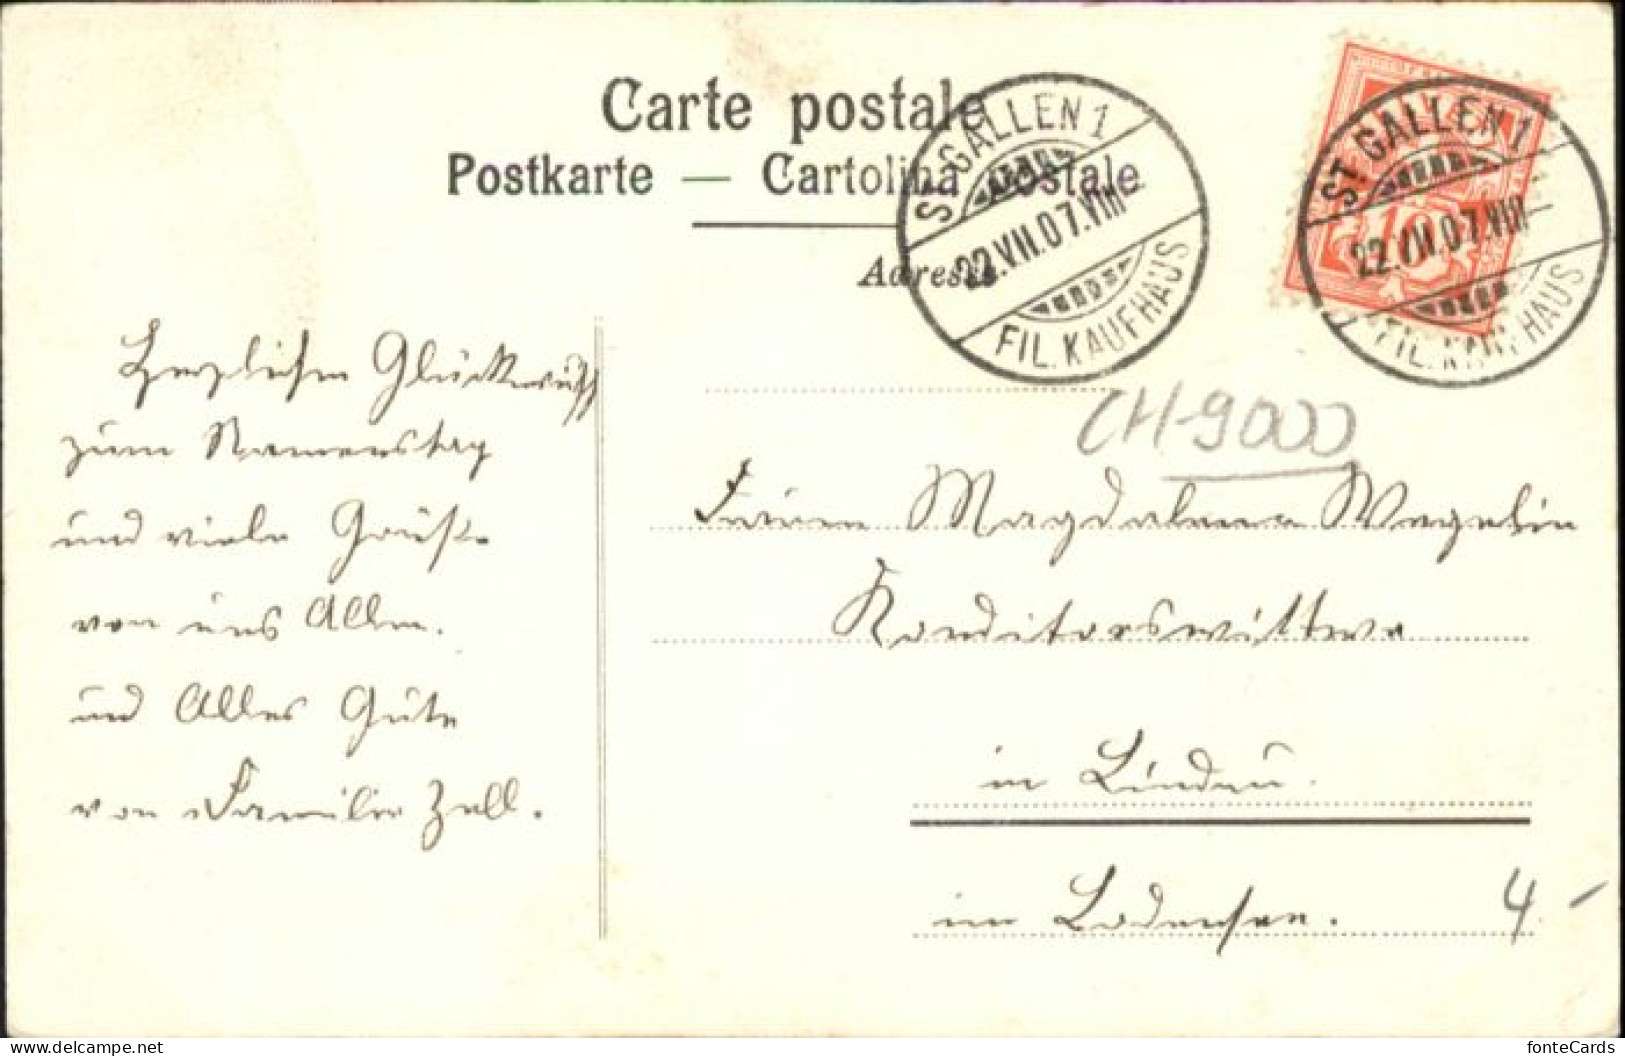 Carte postale
Postkarte — Cartolina postale
Adresse
ST. GALLEN 1
22.VII.07.VIII
FIL. KAUFHAUS
ST. GALLEN 1
22.VII.07.VIII
FIL. KAUFHAUS
10
CH-9000
Herzlichen Glückwunsch
zum Namenstag
und viele Grüße
von uns Allen.
und Alles Gute
von Familie Zell.
Frauen Magdalena Wegelin
Konditorswittwe
in Lindau.
im Bodensee.
4.-
delcampe.net
fonteCards